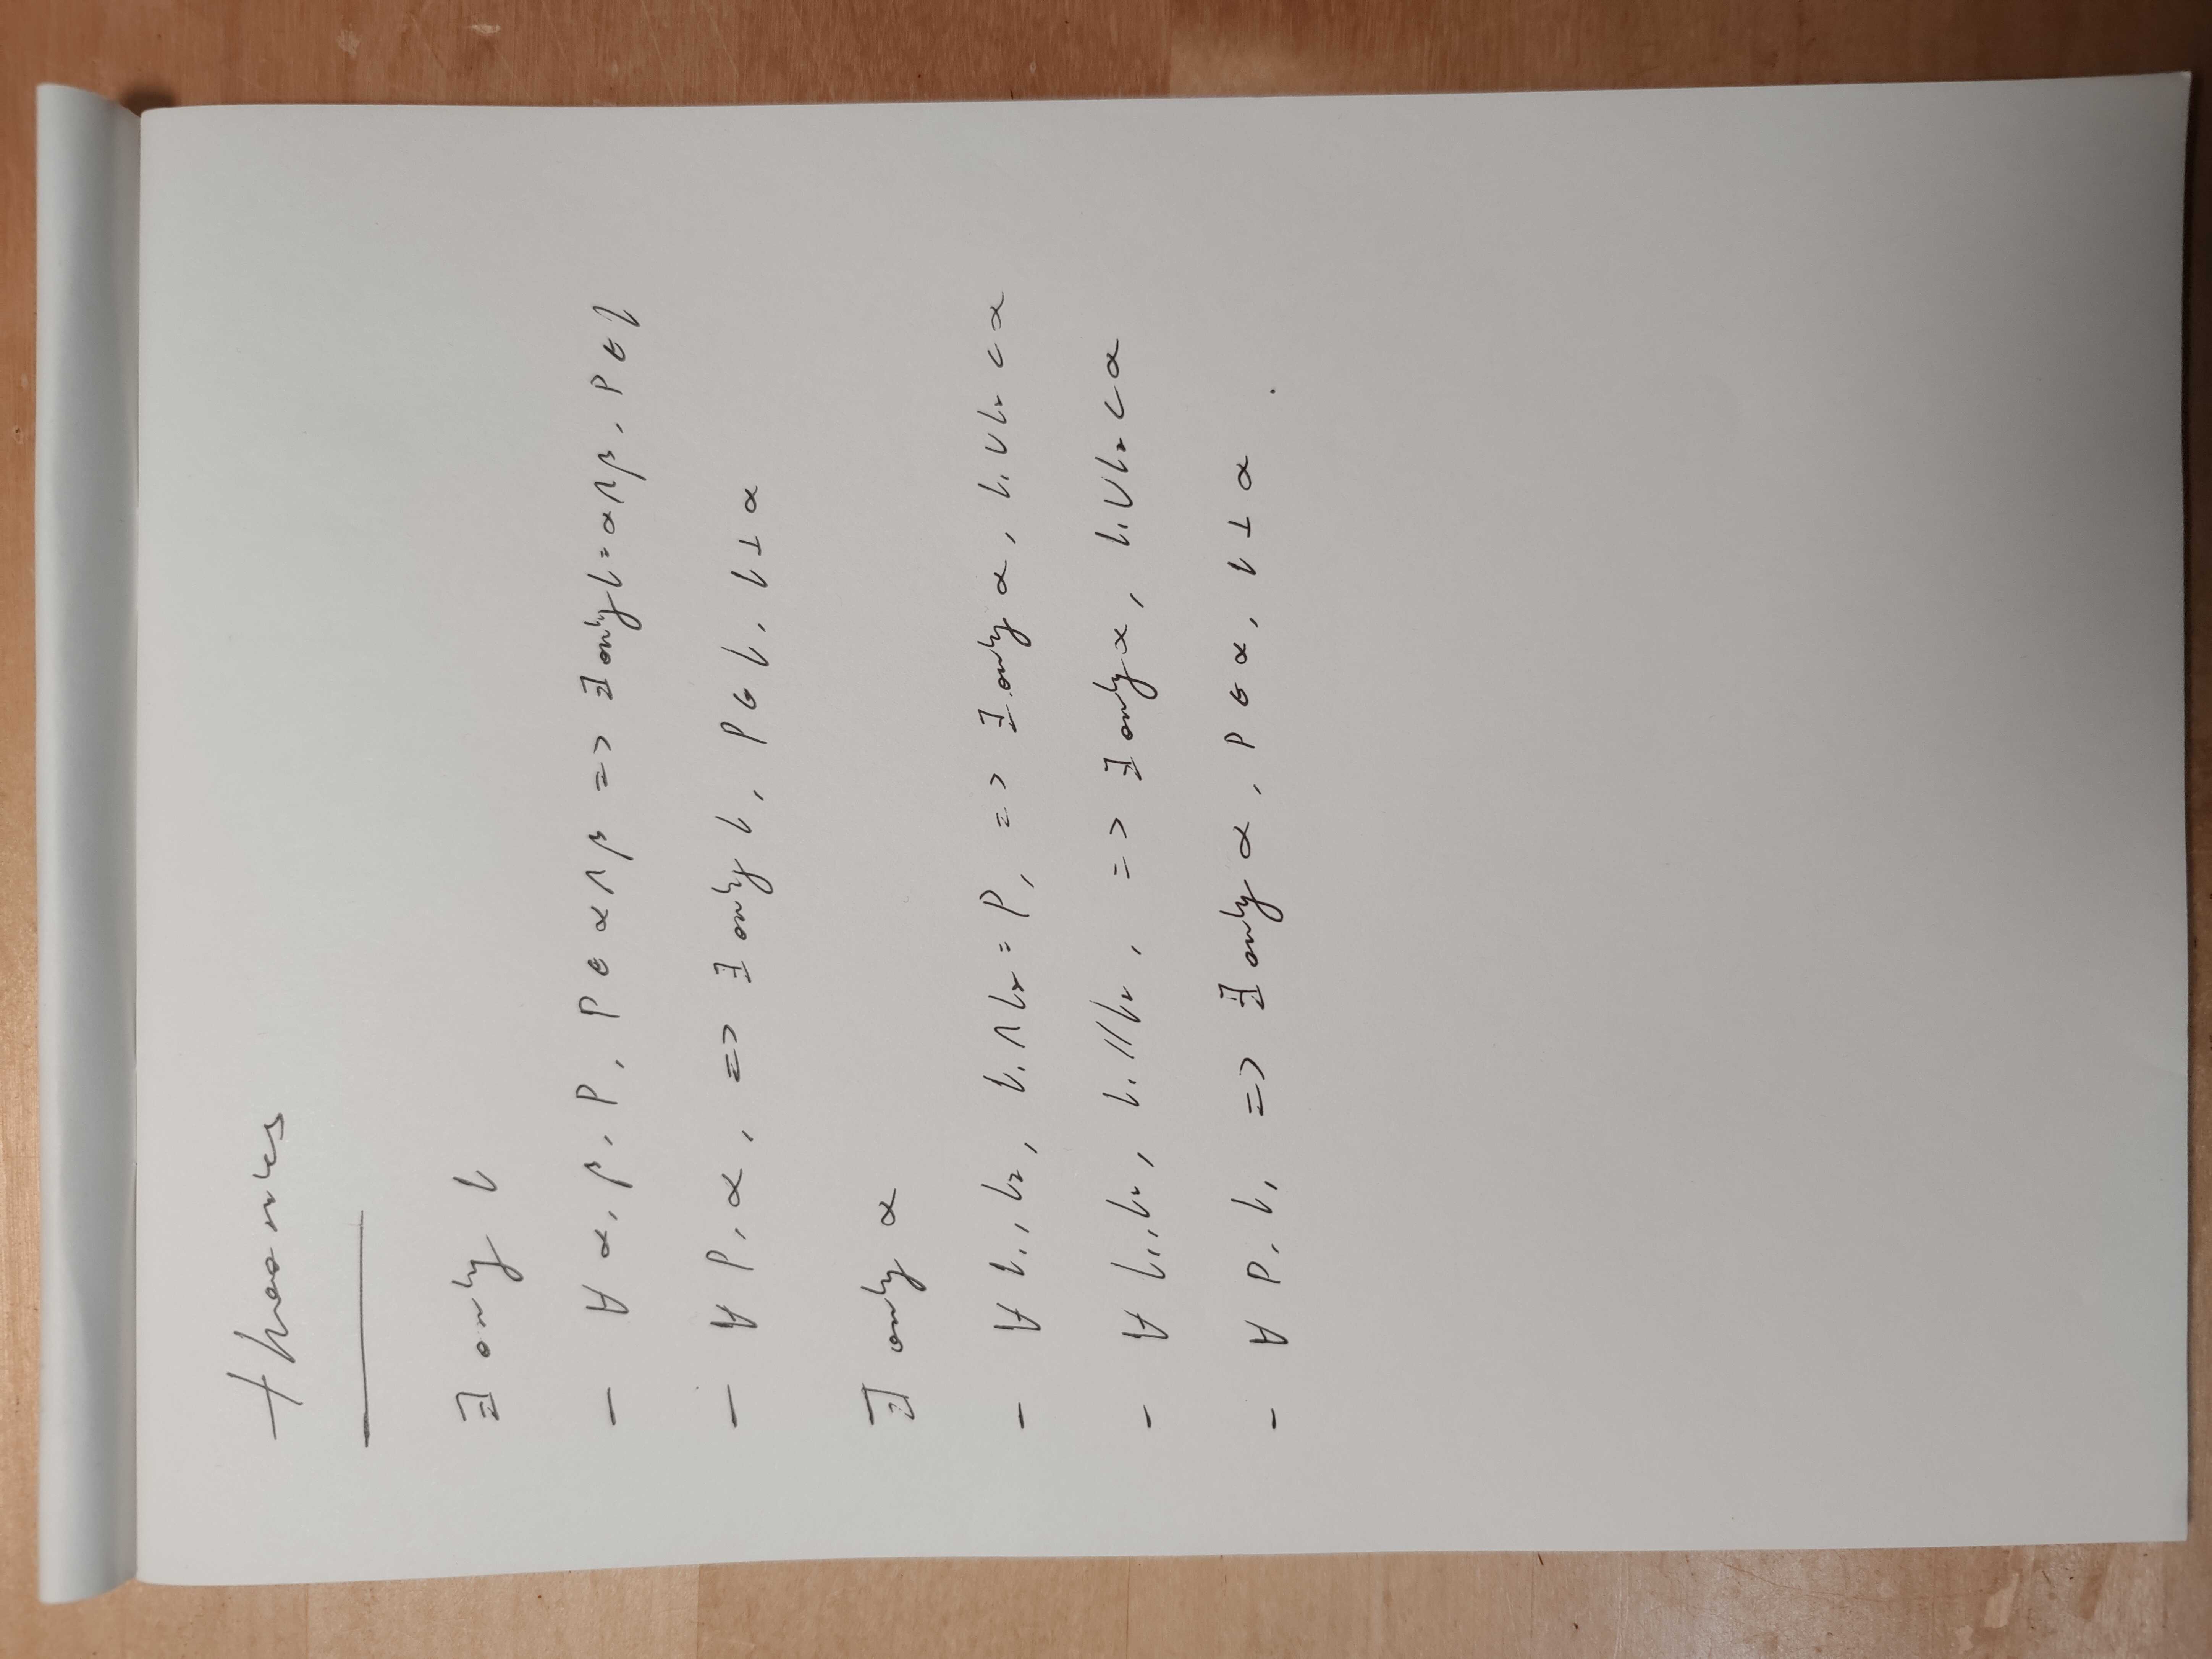 theories
∃ only l
- ∀ α, β, P, P ∈ α ∩ β => ∃ only l = α ∩ β, P ∈ l
- ∀ P, α, => ∃ only l, P ∈ l, l ⊥ α
∃ only α
- ∀ l₁, l₂, l₁ ∩ l₂ = P, => ∃ only α, l₁ ∪ l₂ ⊂ α
- ∀ l₁, l₂, l₁ // l₂, => ∃ only α, l₁ ∪ l₂ ⊂ α
- ∀ P, l, => ∃ only α, P ∈ α, l ⊥ α